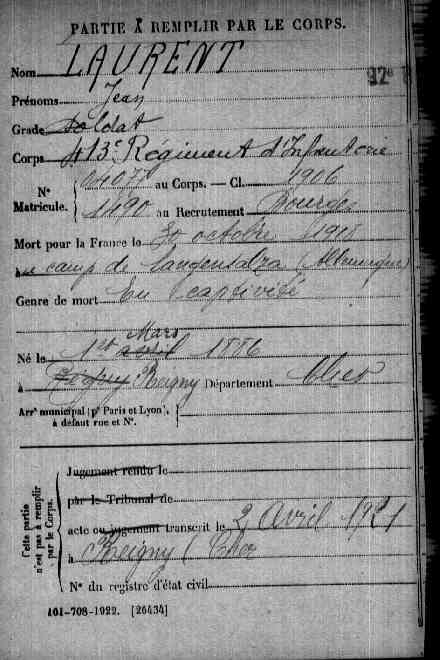 PARTIE À REMPLIR PAR LE CORPS.
Nom LAURENT
92e
Prénoms Jean
Grade soldat
Corps 413e Régiment d'Infanterie
N° Matricule.
04077 au Corps. — Cl. 1906
1490 au Recrutement Bourges
Mort pour la France le 30 octobre 1918
au camp de Langensalza (Allemagne)
Genre de mort En captivité
Mars
Né le 1er avril 1886
à Reigny Département Cher
Arrt municipal (pr Paris et Lyon), à défaut rue et N°.
Cette partie n'est pas à remplir par le Corps.
Jugement rendu le
par le Tribunal de
acte ou jugement transcrit le 2 Avril 1921
à Reigny (Cher
N° du registre d'état civil
101-708-1922. [26434]